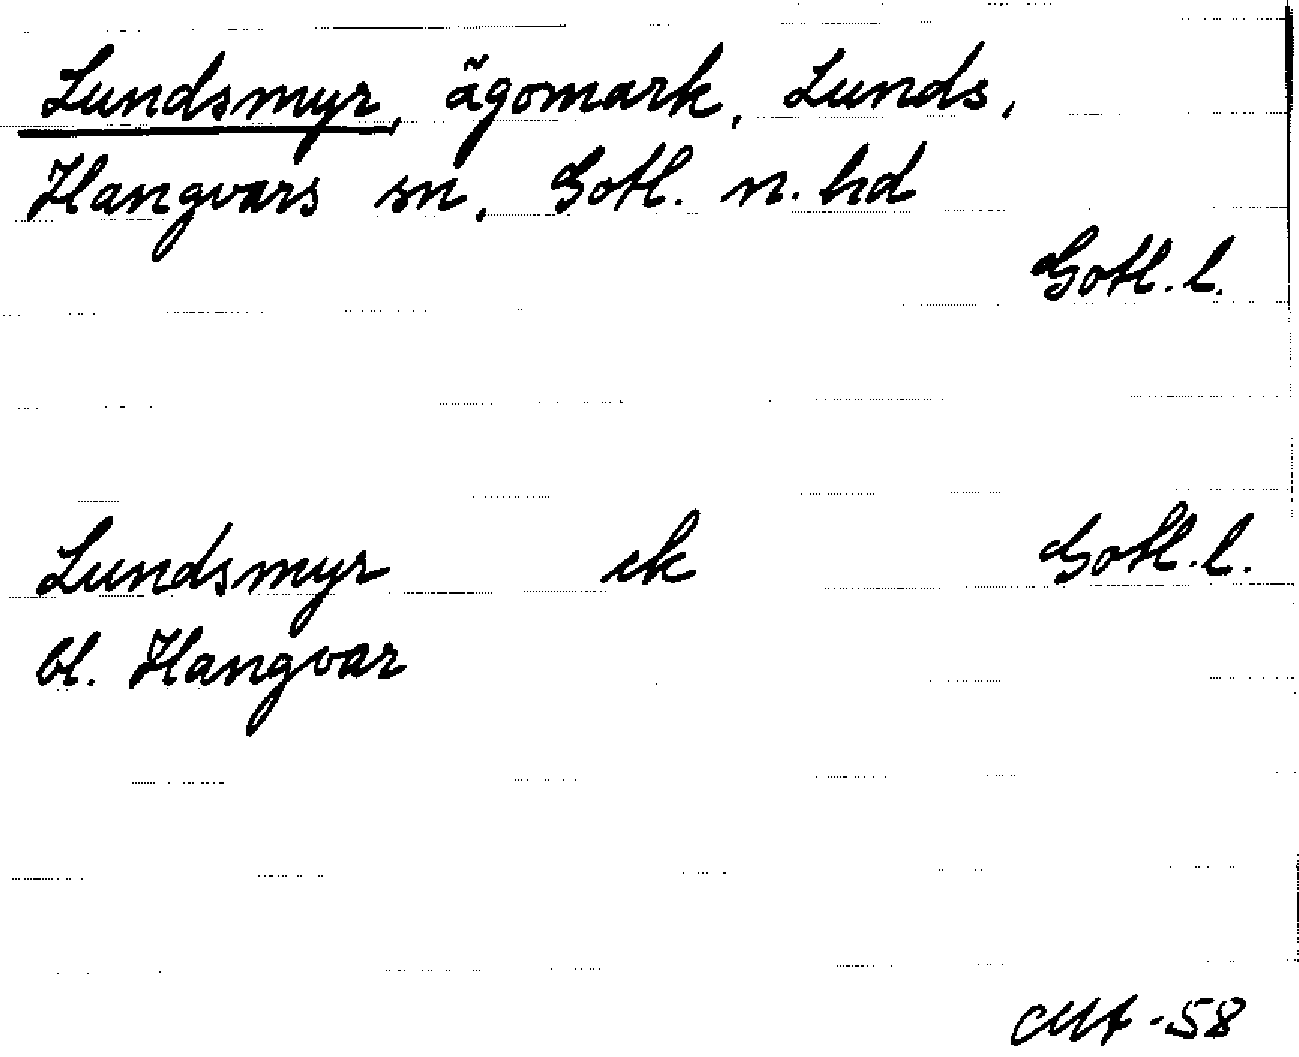 Lundsmyr, ägomark, Lunds,
Hangvars sn, Gotl. n. hd
Gotl. l.
Lundsmyr ek Gotl. l.
bl. Hangvar
-58